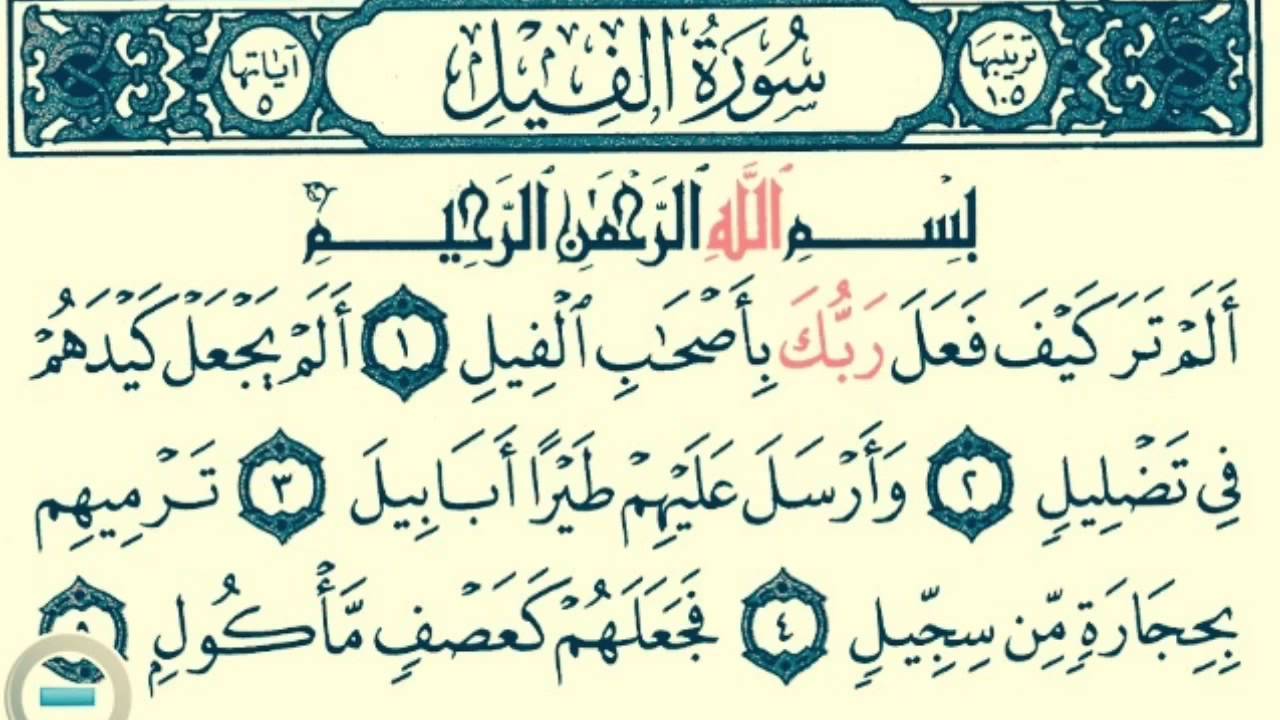 ترتيبها ١٠٥
سُورَةُ الفِيلِ
آياتها ٥
بِسْمِ اللَّهِ الرَّحْمَٰنِ الرَّحِيمِ
أَلَمْ تَرَ كَيْفَ فَعَلَ رَبُّكَ بِأَصْحَٰبِ ٱلْفِيلِ ١ أَلَمْ يَجْعَلْ كَيْدَهُمْ
فِى تَضْلِيلٍ ٢ وَأَرْسَلَ عَلَيْهِمْ طَيْرًا أَبَابِيلَ ٣ تَرْمِيهِم
بِحِجَارَةٍ مِّن سِجِّيلٍ ٤ فَجَعَلَهُمْ كَعَصْفٍ مَّأْكُولٍ